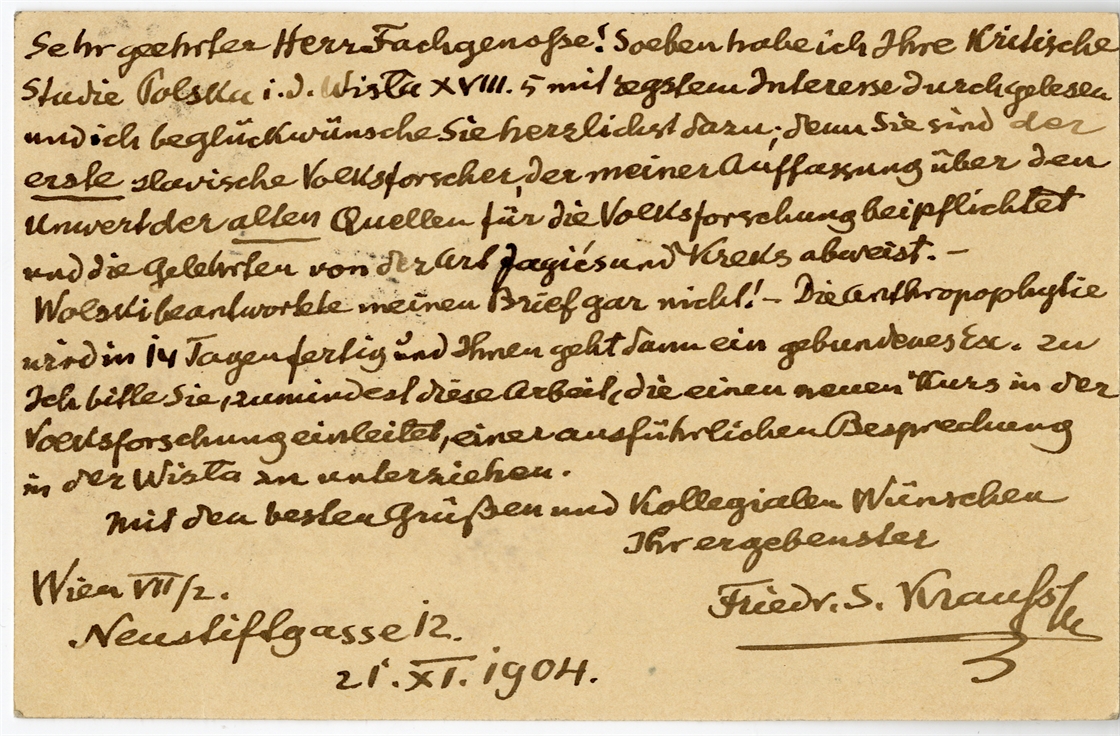 Sehr geehrter Herr Fachgenosse! Soeben habe ich Ihre Kritische
Studie Polska i. d. Wisła XVIII. 5 mit regstem Interesse durchgelesen
und ich beglückwünsche Sie herzlichst dazu; denn Sie sind der
erste slavische Volksforscher, der meiner Auffassung über den
Unwert der alten Quellen für die Volksforschung beipflichtet
und die Gelehrten von der Art Jagićs und Kreks abweist. –
Wolski beantwortete meinen Brief gar nicht! – Die Anthropophytie
wird in 14 Tagen fertig und Ihnen geht dann ein gebundenes Ex. zu
Ich bitte Sie, zumindest diese Arbeit, die einen neuen Kurs in der
Volksforschung einleitet, einer ausführlichen Besprechung
in der Wisła zu unterziehen.
Mit den besten Grüßen und Kollegialen Wünschen
Ihr ergebenster
Wien VII/2.
Friedr. S. Krauss
Neustiftgasse 12.
21. XI. 1904.